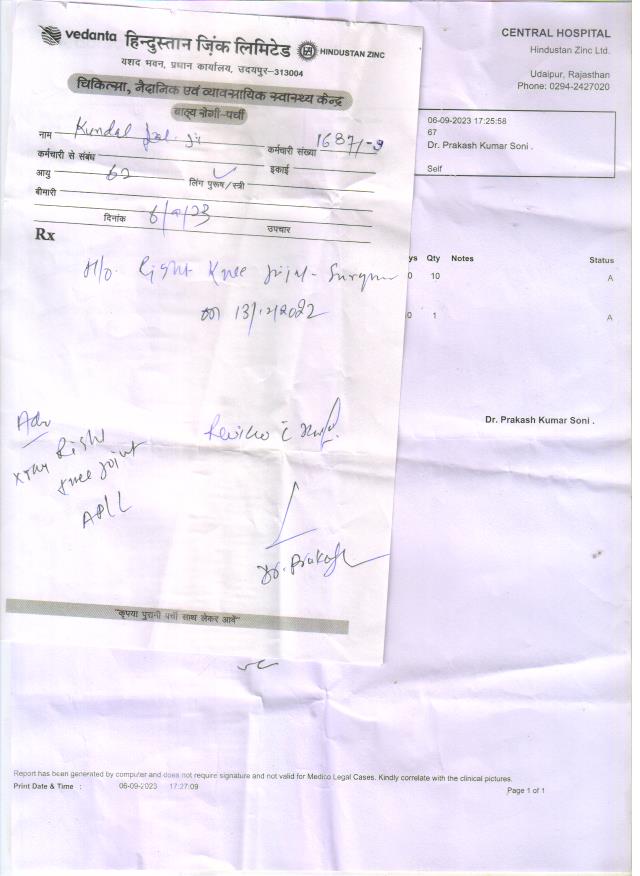 vedanta हिन्दुस्तान ज़िंक लिमिटेड HINDUSTAN ZINC
यशद भवन, प्रधान कार्यालय, उदयपुर-313004
चिकित्सा, नैदानिक एवं व्यावसायिक स्वास्थ्य केन्द्र
बाह्य रोगी-पर्ची
नाम Kundal कर्मचारी संख्या 1687/-
कर्मचारी से संबंध इकाई
आयु 62 लिंग पुरूष/स्त्री
बीमारी
दिनांक 6/9/23 उपचार
Rx
H/o. Right Knee Joint-Surgery
on 13/12/2022
Adv
Xray Right
Knee Joint
AP/L
Review c
Dr. Prakash
"कृपया पुरानी पर्ची साथ लेकर आवें"
CENTRAL HOSPITAL
Hindustan Zinc Ltd.
Udaipur, Rajasthan
Phone: 0294-2427020
06-09-2023 17:25:58
67
Dr. Prakash Kumar Soni .
Self
ys Qty Notes Status
0 10 A
0 1 A
Dr. Prakash Kumar Soni .
Report has been generated by computer and does not require signature and not valid for Medico Legal Cases. Kindly correlate with the clinical pictures.
Print Date & Time : 06-09-2023 17:27:09
Page 1 of 1